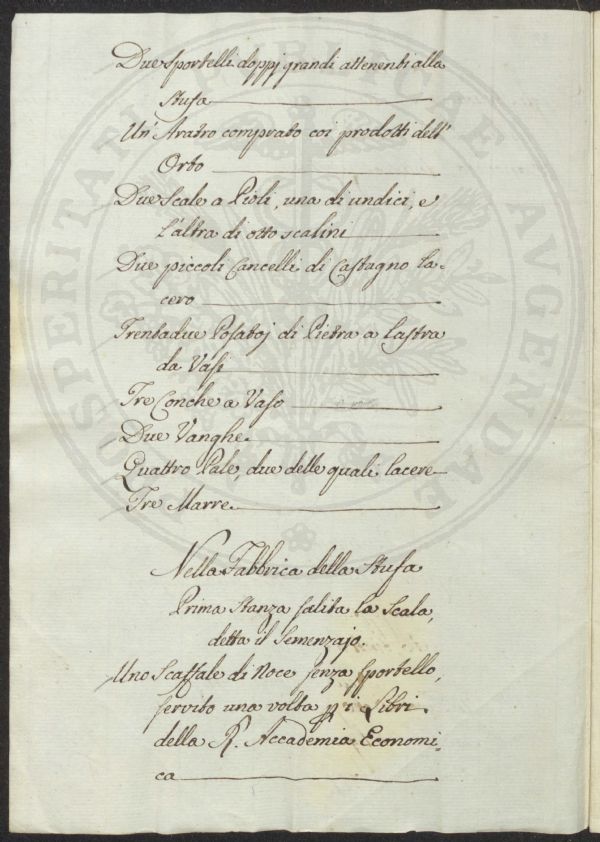 Due Sportelli doppj grandi attenenti alla
Stufa
Un' Aratro comprato coi prodotti dell'
Orto
Due Scale a Pioli, una di undici, e
L'altra di otto scalini
Due piccoli Cancelli di Castagno la-
cero
Trentadue Posatoj di Pietra a lastra
da Vasi
Tre Conche a Vaso
Due Vanghe
Quattro Pale, due delle quali lacere
Tre Marre
Nella Fabbrica della Stufa
Prima Stanza salita la Scala,
detta il Semenzajo.
Uno Scaffale di Noce senza sportello,
servito una volta p i Libri
della R. Accademia Economi-
ca
PROSPERITATI PUBLICAE AUGENDAE